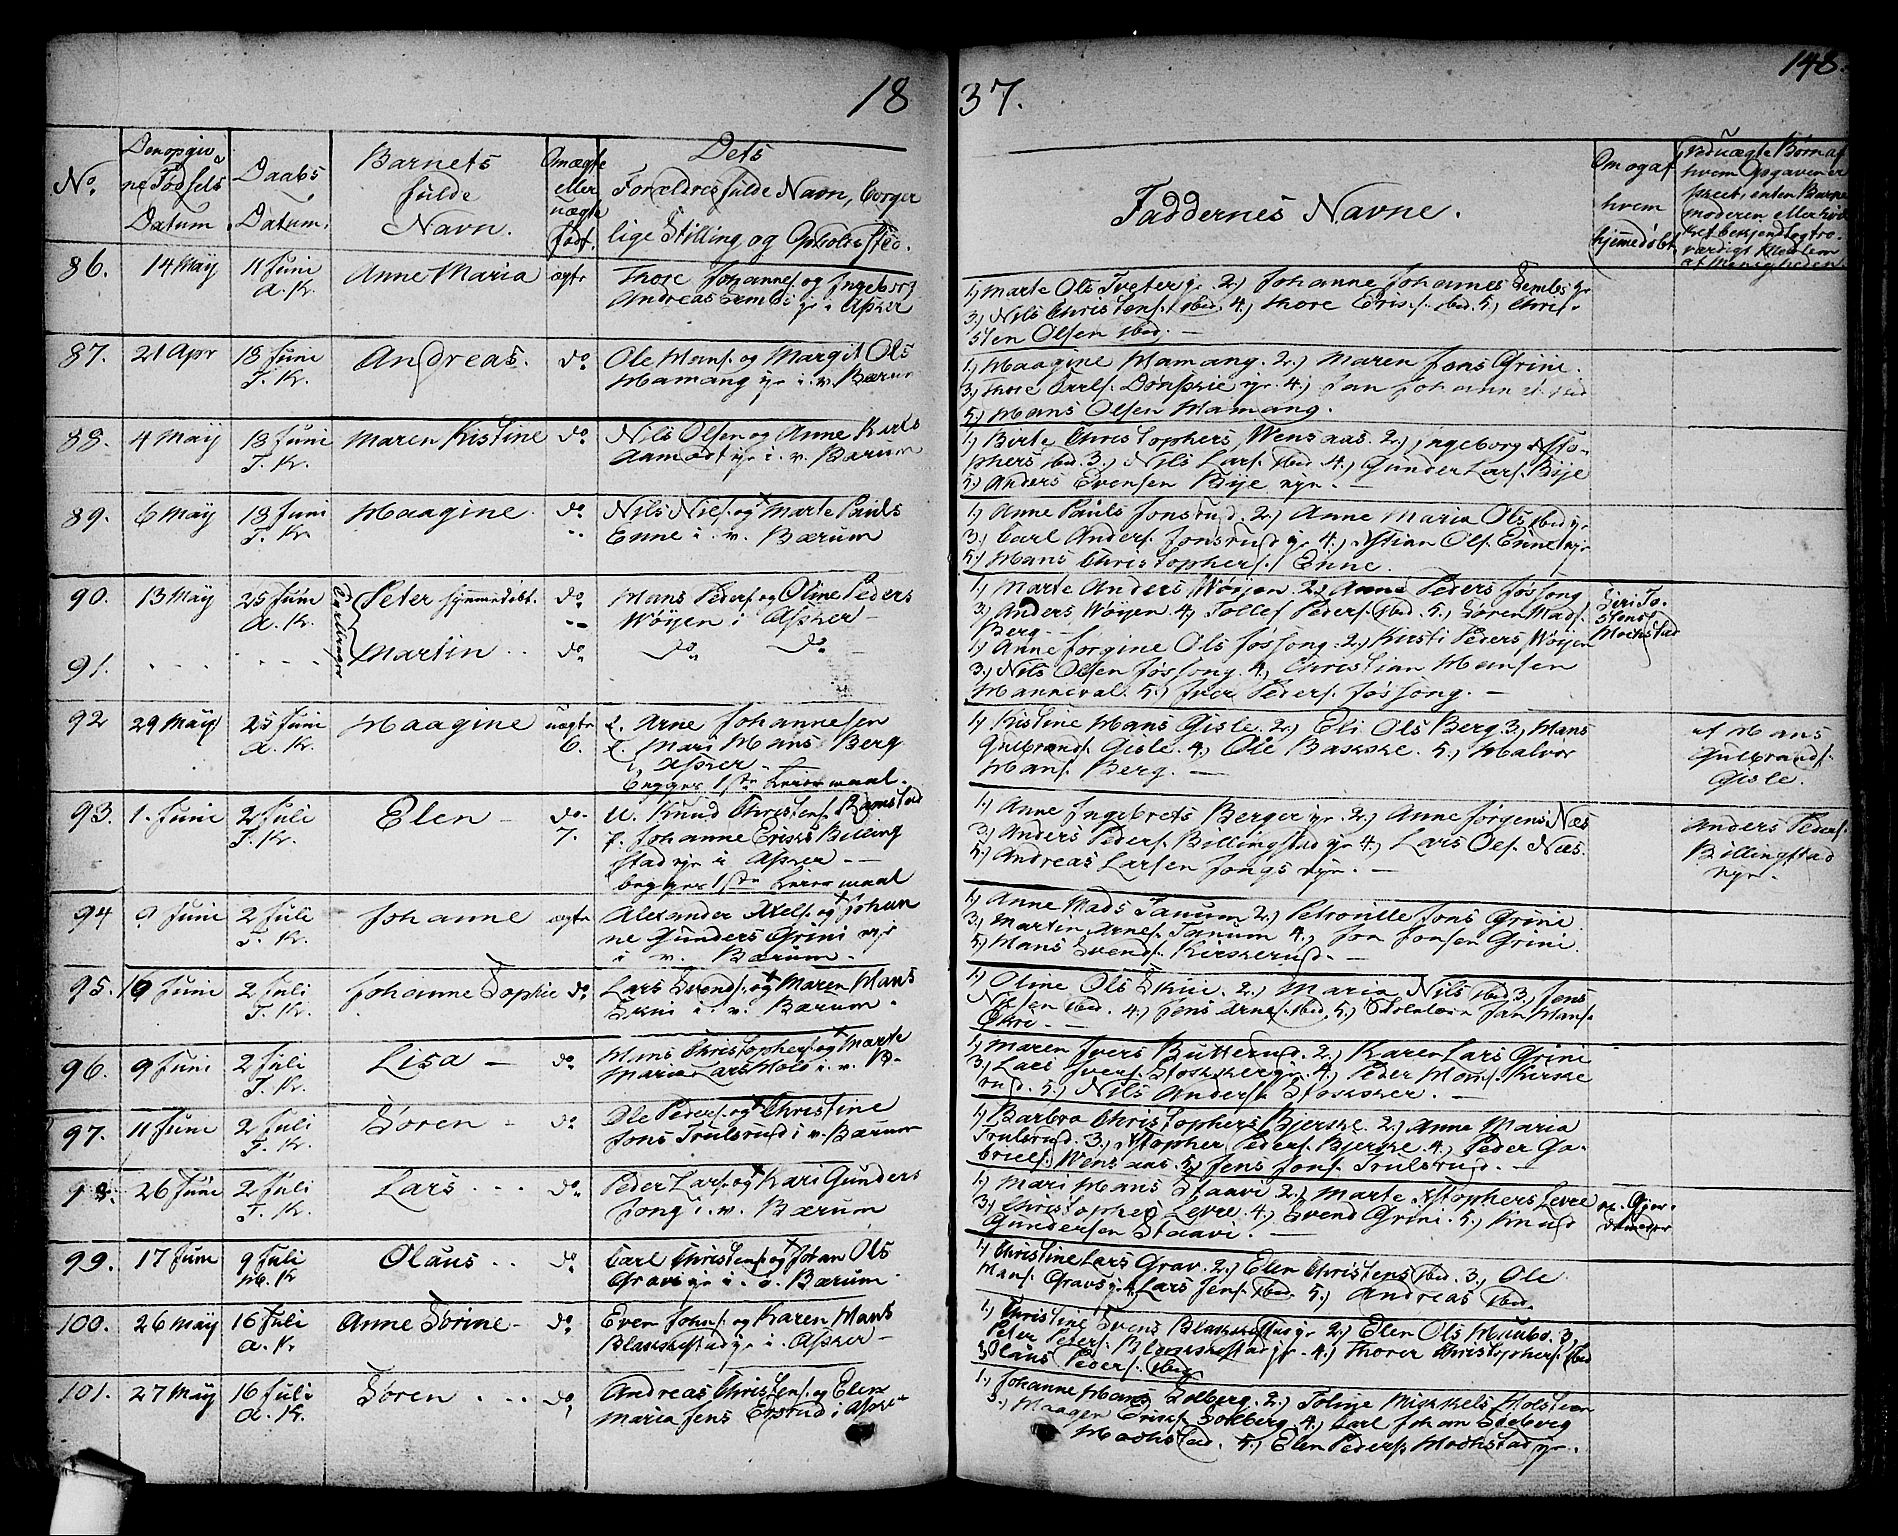 1837.
148.
No.
Den opgiv
ne Fødsels
Datum.
Daabs
Datum.
Barnets
fulde
Navn.
Om ægte
eller
uægte
født.
Dets
Forældres fulde Navn, borger
lige Stilling og Opholdssted.
Faddernes Navne.
Om og af
hvem
hjemmedøbt
Ved uægte Børn af
hvem Opgaven er
skeet, enten Barne
moderen eller
af Menigheden.
86. 14 May 11 Juni Anne Maria ægte Thore Johannes. og Ingeborg
A. K. Andreas Semb i Asker
1, Marte Ols Tveter yr. 2, Johanne Johannes Semb yr
3, Nils Christens. ibid. 4, Thore Eriks. ibid. 5, Chris-
sten Olsen ibid. —
87. 21 Apr 18 Juni Andreas. do Ole Hans. og Margit Ols
T. K. Hamang yr i. v. Bærum
1, Haagine Hamang. 2, Maren Jons Grini.
3, Thore Carls. Dønskie yr. 4, Jan Johannes. ibid
5, Hans Olsen Hamang.
88. 4 May 18 Juni Maren Kistine do Nils Olsen og Anne
T. K. Aamodt yr i. v. Bærum
1, Birte Christophers Wensaas. 2, Ingeborg Xsto-
phers ibid. 3, Nils Lars. ibid. 4, Gunder Lars. Bye
5, Anders Evensen Bye nyr. —
89. 6 May 18 Juni Haagine. do Nils Niels. og Marte Pauls
T. K. Enne i. v. Bærum
1, Anne Pauls Jonsrud. 2, Anne Maria Ols ibid yr
3, Carl Anders. Jonsrud yr 4, Xstian Ols. Enne nyr
5, Hans Christophers. Enne.
90. 13 May 25 Juni Peter hjemmedøbt. do Hans Peders. og Oline Peders
A. K. Wøyen i Asker —
1, Marte Anders Wøyen 2, Anne Peders Jøssong
3, Anders Wøyen 4, Tollef Peders. ibid. 5, Søren Mads.
Berg —
Siri To-
stens
91. Martin . . do do do
1, Anne Jorgine Ols Jøssong. 2, Kirsti Peders Wøyen
3, Nils Olsen Jøssong. 4, Christian Hansen
Manneval. 5, Iver Peders. Jøssong. —
92 29 May 25 Juni Haagine uægte Arne Johannesen
A. K. 6. Mari Hans Berg
i Asker —
begges 1ste Leiermaal.
1, Kistine Hans Gisle. 2, Eli Ols Berg. 3, Hans
Gulbrands. Gisle. 4, Ole Bakke. 5, Halvor
Hans. Berg. —
af Hans
Gulbrands.
Gisle.
93. 1. Juni 2 Juli Elen — do. U. Knud Christens. Ramstad
T. K. 7. f. Johanne Eriks Billing
stad yr i Asker —
begges 1ste Leiermaal
1, Anne Ingebrets Berger yr. 2, Anne Jørgens Næs
3, Anders Peders. Billingstad yr 4, Lars Ols. Næs.
5, Andreas Larsen Jongs nyr. —
Anders Peders.
Billingstad
nyr.
94 9 Juni 2 Juli Johanne ægte Alexander Axels. og Johan
T. K. ne Gunders Grini nyr
i v. Bærum. —
1, Anne Mads Tanum 2, Petronille Jons Grini
3, Martin Arnes. Tanum 4, Jon Jonsen Grini
5, Hans Svends. Kirkerud. —
95. 16 Juni 2 Juli Johanne Sophie do Lars Svends. og Maren Hans
T. K. i. v. Bærum.
1, Oline Ols Skui. 2, Maria Nils ibid 3, Jens
Nilsen ibid. 4, Jens Arnes. ibid. 5, Skolelærer Jan Hans.
Ekre —
96. 9 Juni 2 Juli Lisa — do Hans Christophers. og Marte
T. K. Maria Lars Holo i. v. B.
1, Maren Ivers Butterud. 2, Karen Lars Grini
3, Lars Ivers. Stokker yr. 4, Peder Hans. Kirke
rud. 5, Nils Anders. Stokker. —
97. 11 Juni 2 Juli Søren — do Ole Peders. og Christine
T. K. Jons Trulsrud i v. Bærum
1, Barbro Christophers Bjerke. 2, Anne Maria
Trulsrud. 3, Xstopher Peders. Bjerke. 4, Peder Ga-
briels. Wensaas. 5, Jens Jons. Trulsrud. —
98. 26 Juni 2 Juli Lars. . . do Peder Lars. og Kari Gunders
T. K. Jong i. v. Bærum
1, Mari Hans Staavi 2, Marte Xstophers Levre
3, Christopher Levre. 4, Svend Grini. 5, Knud
Gundersen Staavi. —
99. 17 Juni 9 Juli Olaus . . do Carl Christens. og Johan Ols
K Grav yr i. ø. Bærum.
1, Christine Lars Grav. 2, Elen Christens ibid. 3, Ole
Hans. Gravs yr. 4, Lars Jens. ibid. 5, Andreas ibid.
100. 26 May 16 Juli Anne Sørine — do Even Johns. og Karen Hans
A. K Blakkestad yr i. Asker —
1, Christine Svens Blakkestad yr 2, Elen Ols Huubo. 3,
Peter Peters. Blakkestad yr. 4, Thorer Christophers. ibid
5 Olaus Peders. ibid
101. 27 May 16 Juli Søren . . . do Andreas Christens. og Elen
A. K. Maria Jens Eysrud i Asker
1, Johanne Hans Solberg. 2, Toline Mikkels Holstian
3, Haagen Eriks. Solberg. 4, Carl Johan Solberg
5, Elen Peders. yr.